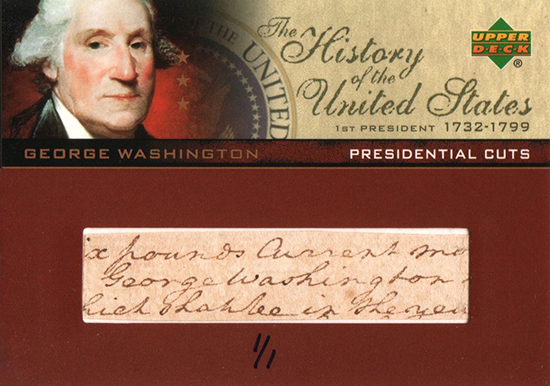 The
History
of the
United States
UPPER
DECK
®
THE UNITED
1ST PRESIDENT 1732-1799
GEORGE WASHINGTON
PRESIDENTIAL CUTS
ix pounds Current mo
George Washington
hich Shall be in the yea
1/1